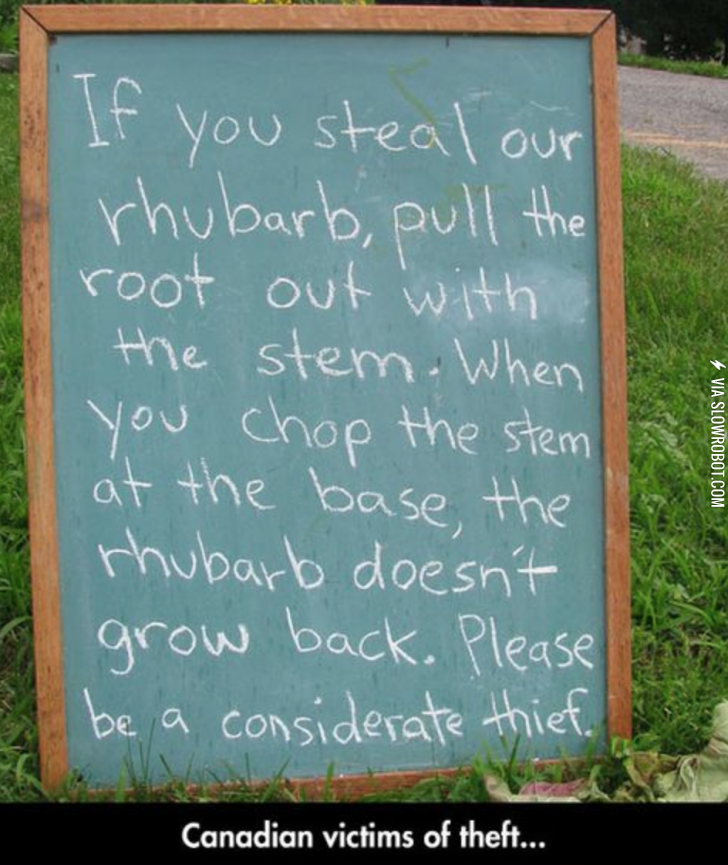 If you steal our
rhubarb, pull the
root out with
the stem. When
you chop the stem
at the base, the
rhubarb doesn't
grow back. Please
be a considerate thief.
VIA SLOWROBOT.COM
Canadian victims of theft...